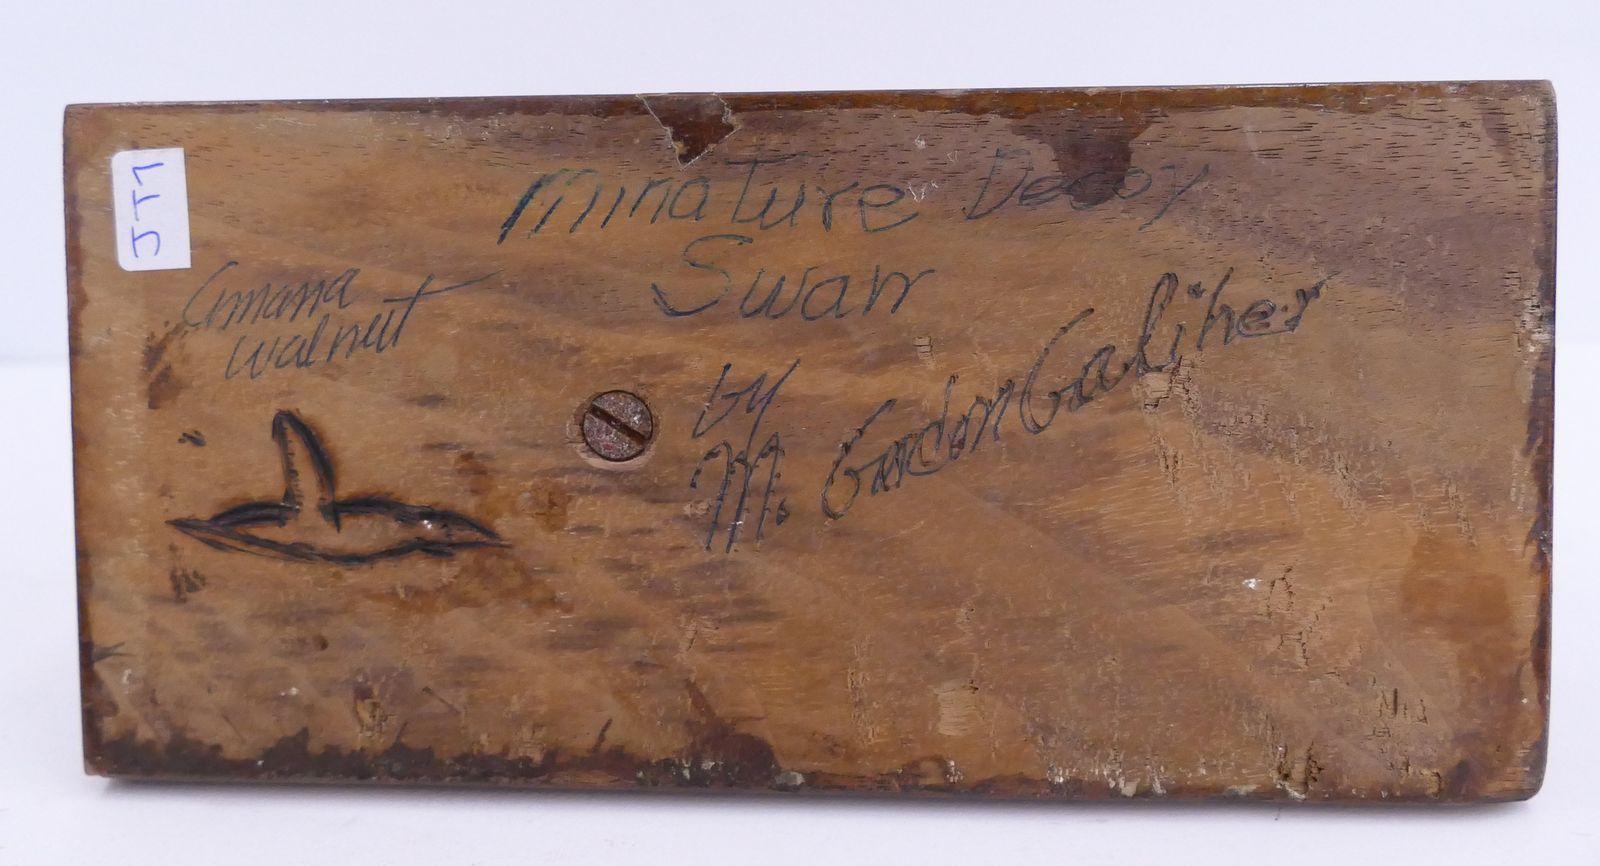 JT7
Minature Decoy
Swan
Amana
Walnut
by
M. Gordon Galiher